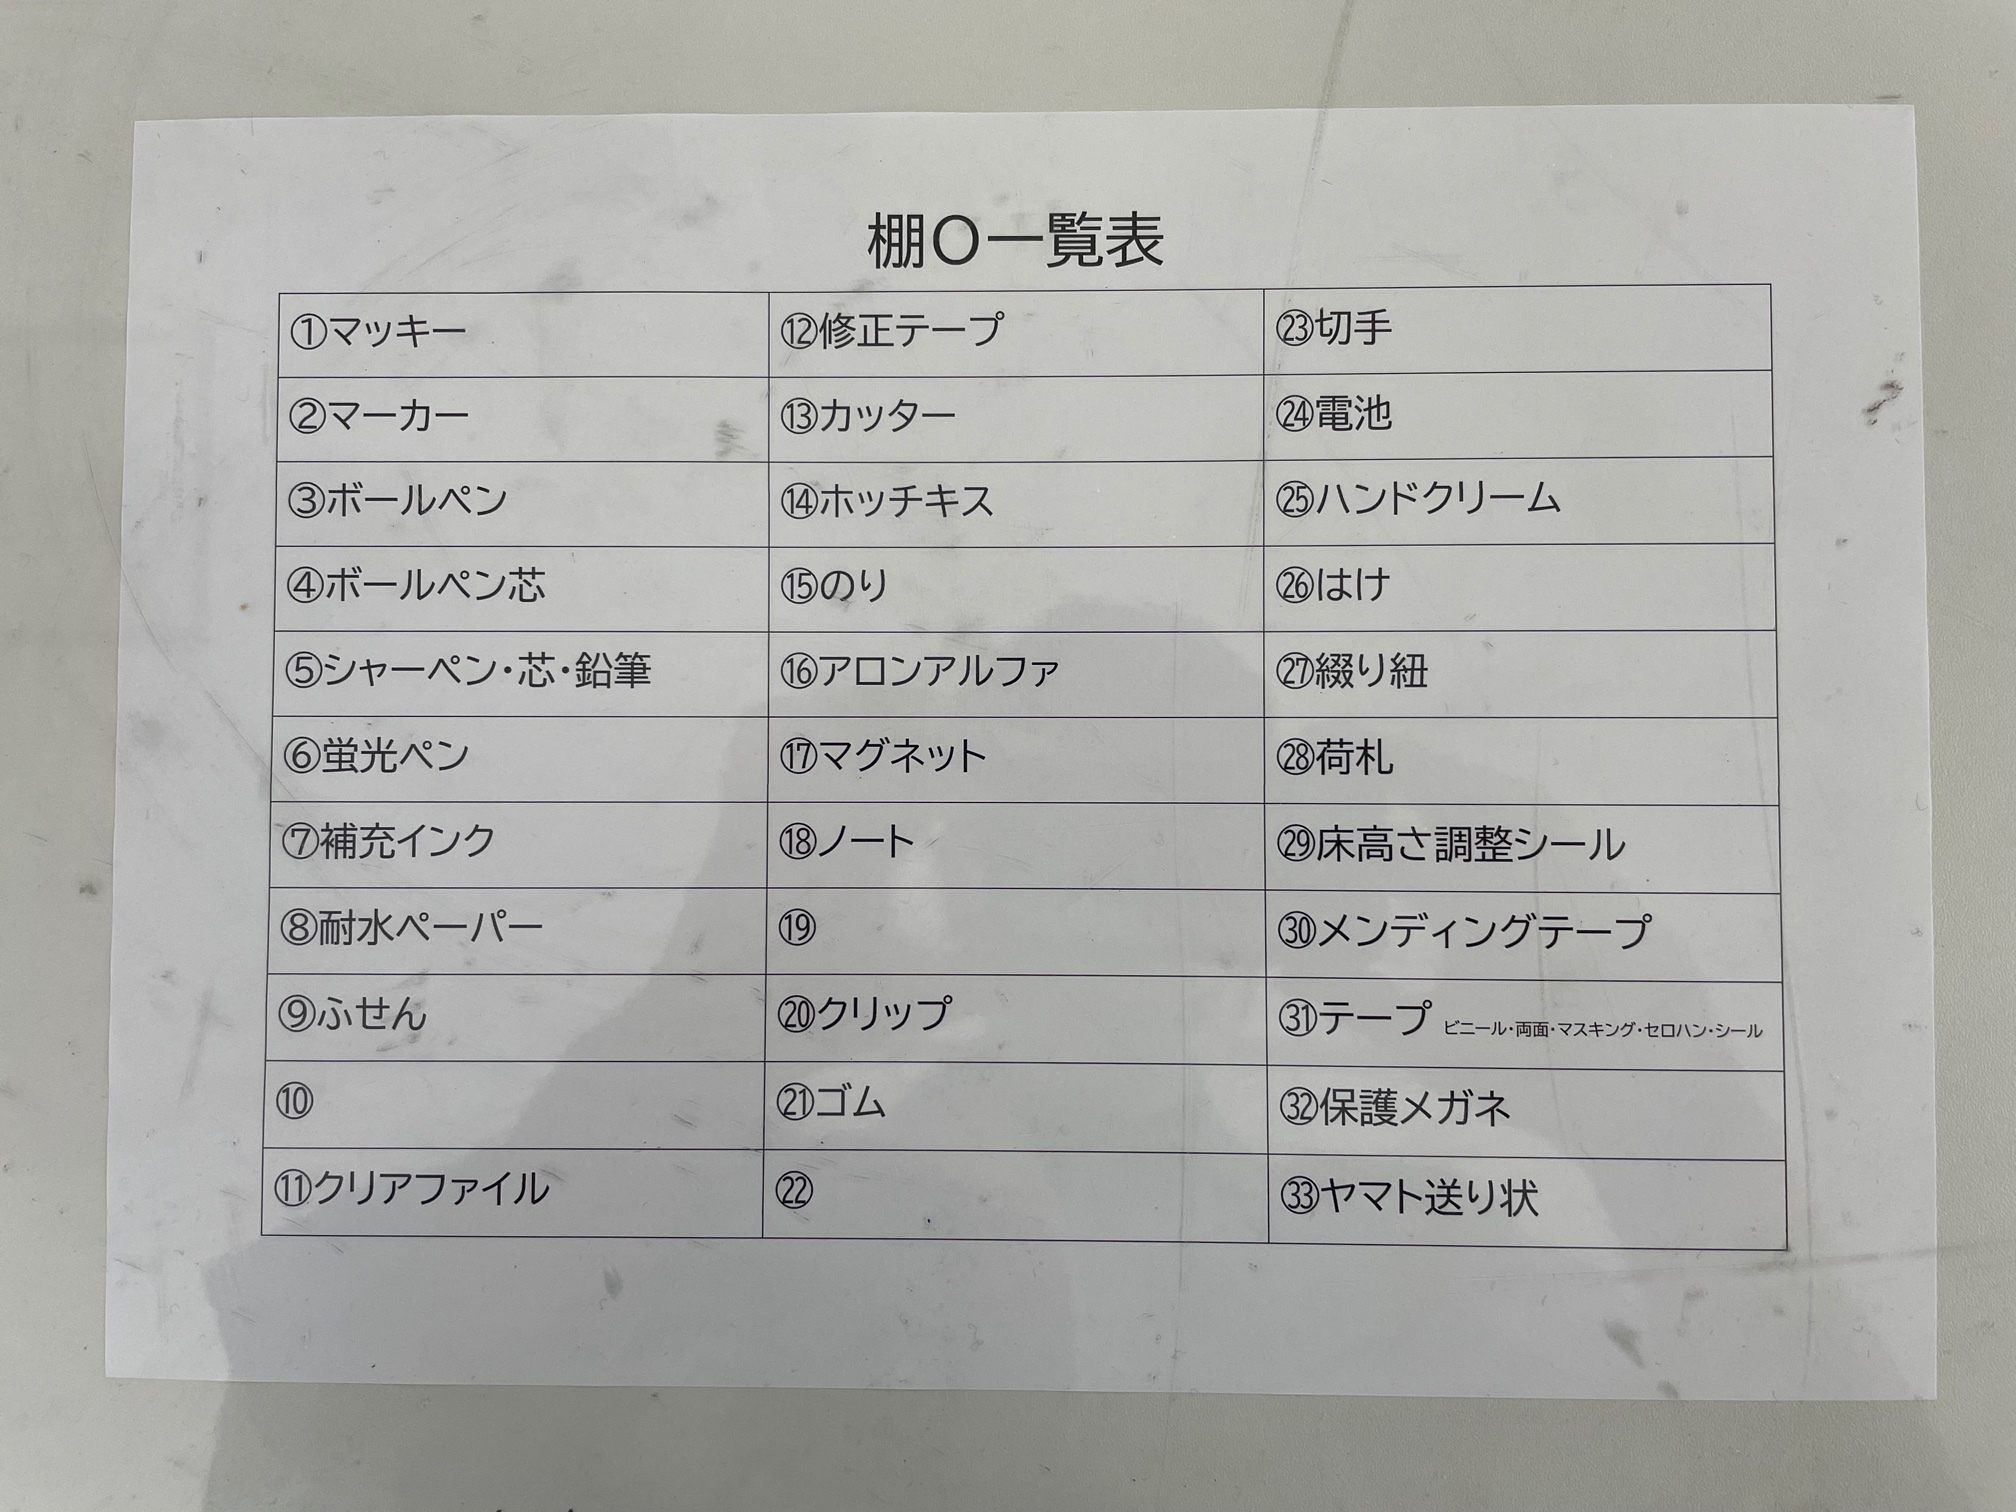 棚O一覧表
①マッキー
②マーカー
③ボールペン
④ボールペン芯
⑤シャーペン・芯・鉛筆
⑥蛍光ペン
⑦補充インク
⑧耐水ペーパー
⑨ふせん
⑩
⑪クリアファイル
⑫修正テープ
⑬カッター
⑭ホッチキス
⑮のり
⑯アロンアルファ
⑰マグネット
⑱ノート
⑲
⑳クリップ
㉑ゴム
㉒
㉓切手
㉔電池
㉕ハンドクリーム
㉖はけ
㉗綴り紐
㉘荷札
㉙床高さ調整シール
㉚メンディングテープ
㉛テープ ビニール・両面・マスキング・セロハン・シール
㉜保護メガネ
㉝ヤマト送り状